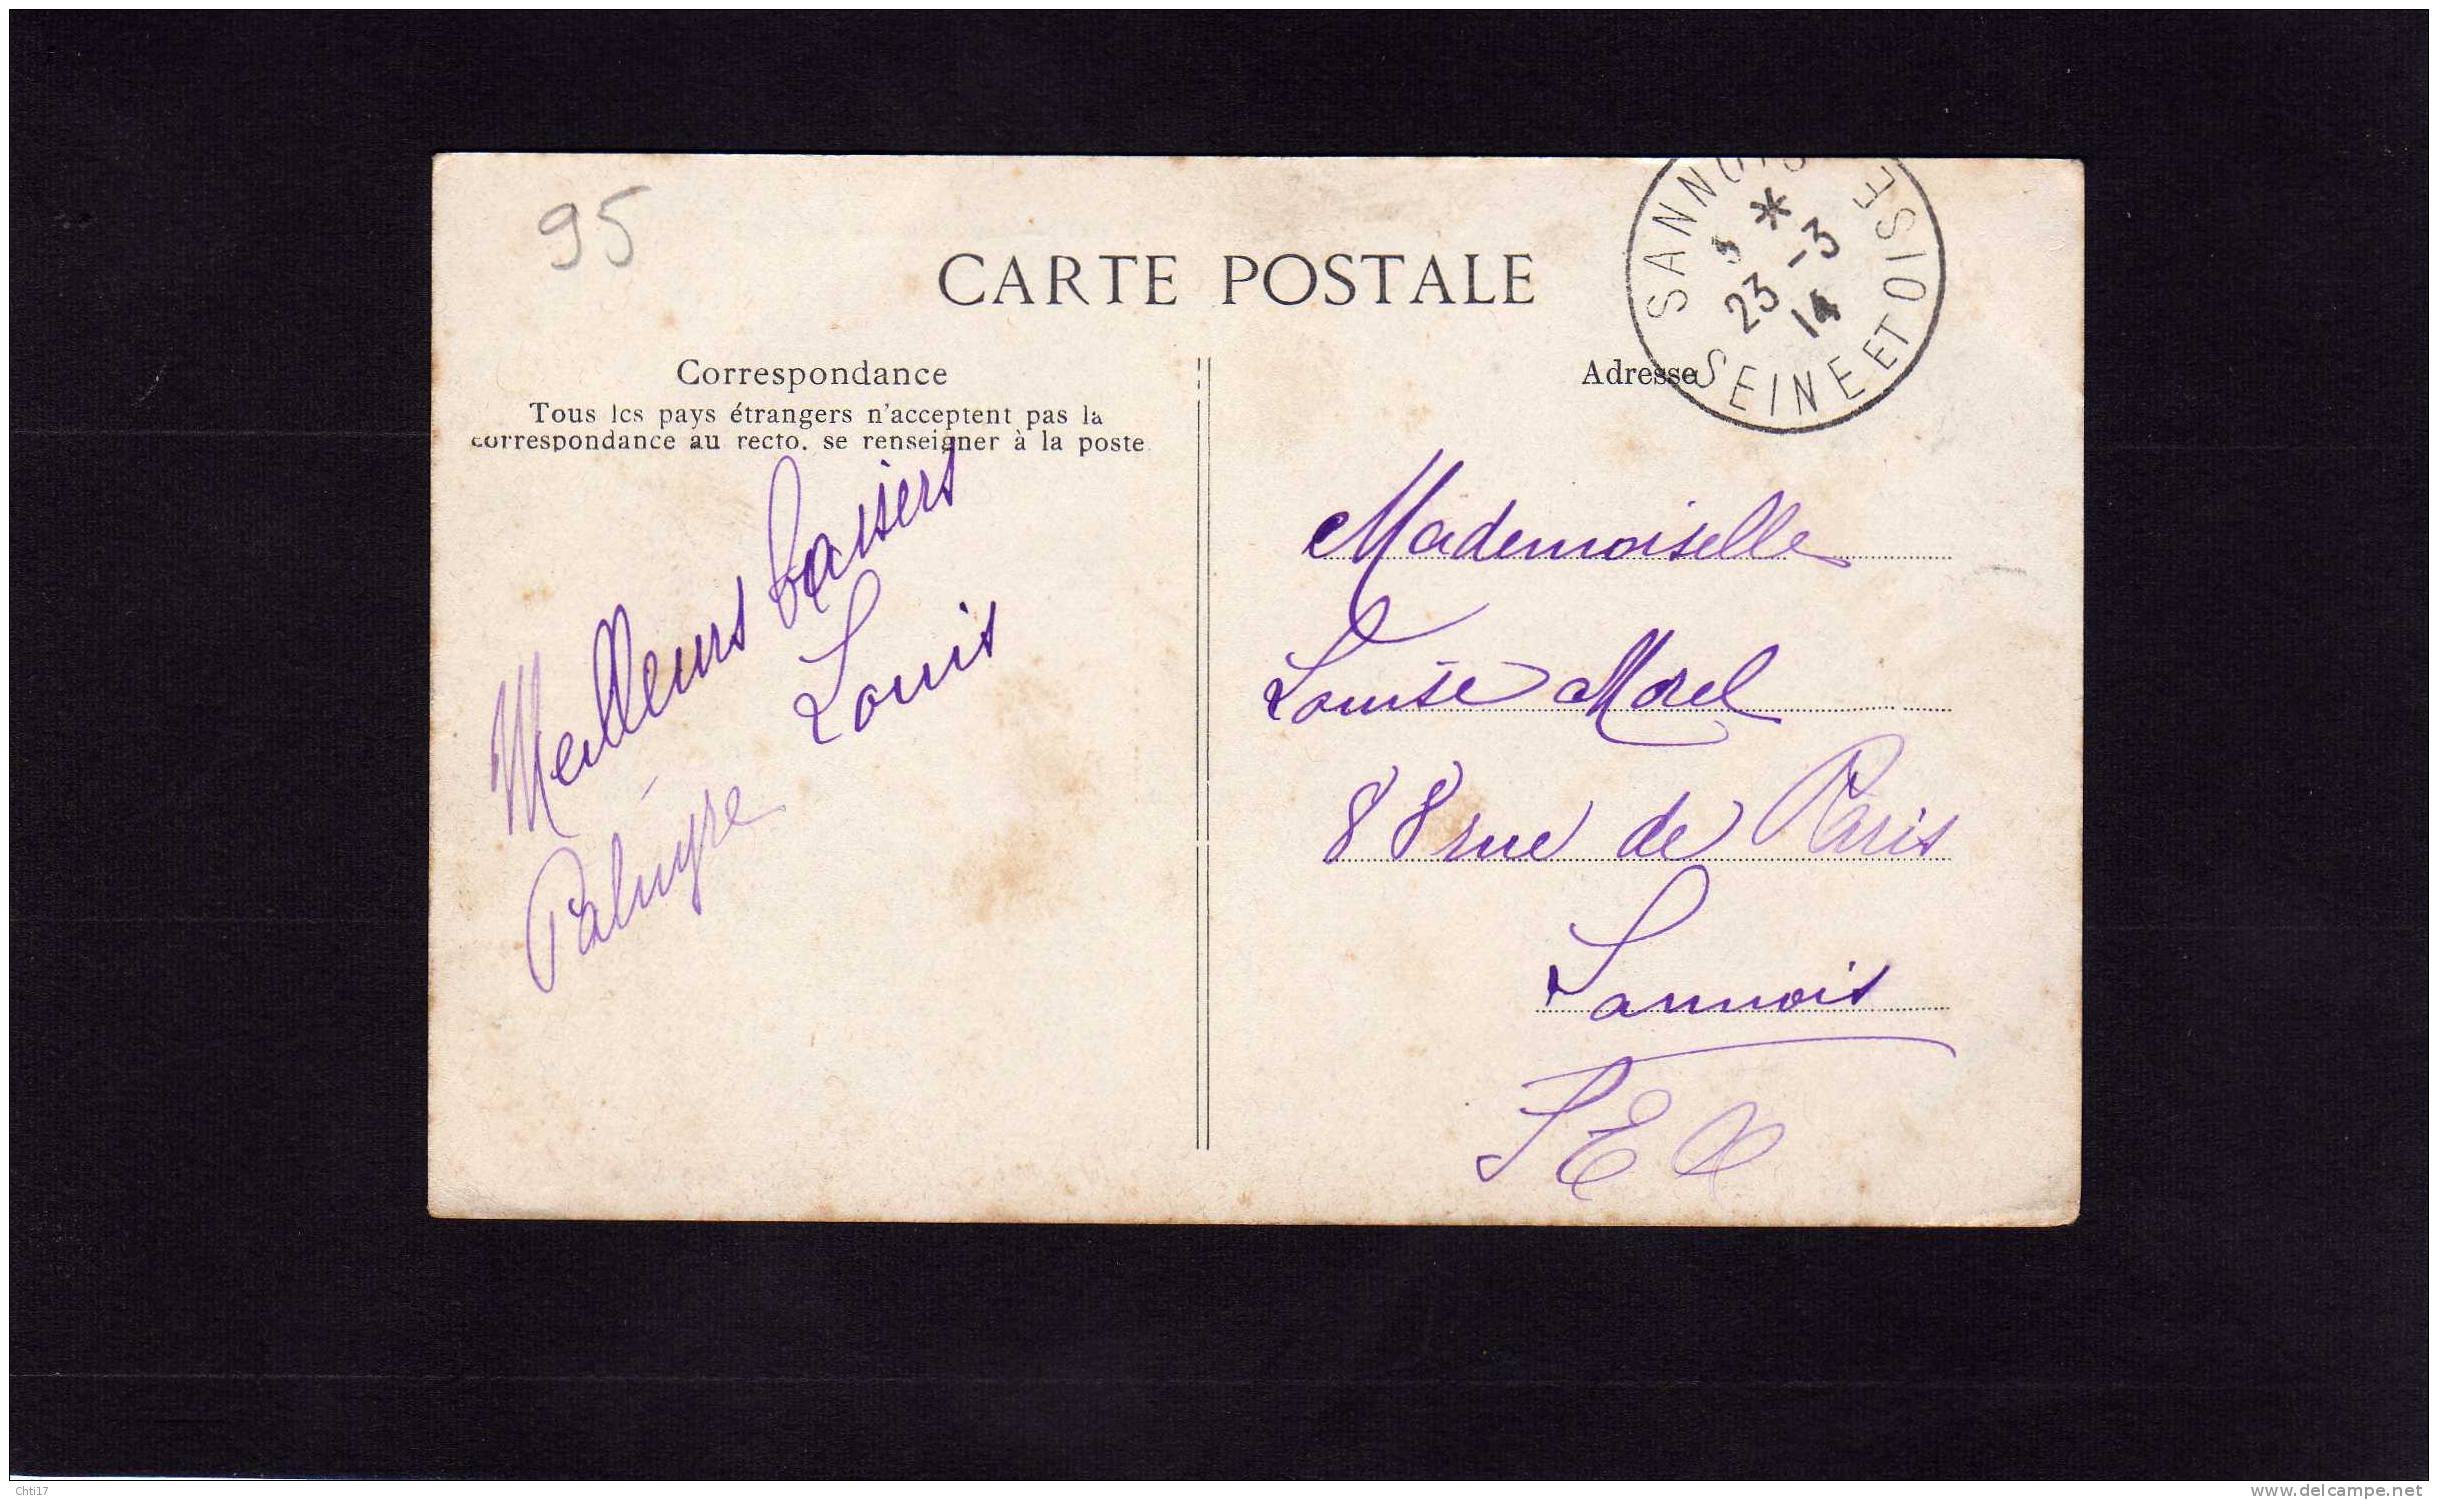 95
CARTE POSTALE
SANNOIS
* 
23 -3
14
SEINE ET OISE
Correspondance
Tous les pays étrangers n'acceptent pas la
correspondance au recto. se renseigner à la poste
Meilleurs baisers
Louis
Palmyre
Adresse
Mademoiselle
Louise Morel
88 rue de Paris
Sannois
S E O
Chti17
www.delcampe.net